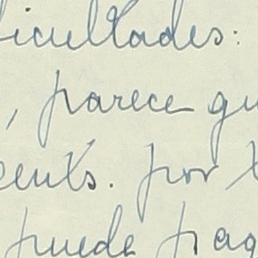 ficultades:
, parece qu
ents. por
puede pag